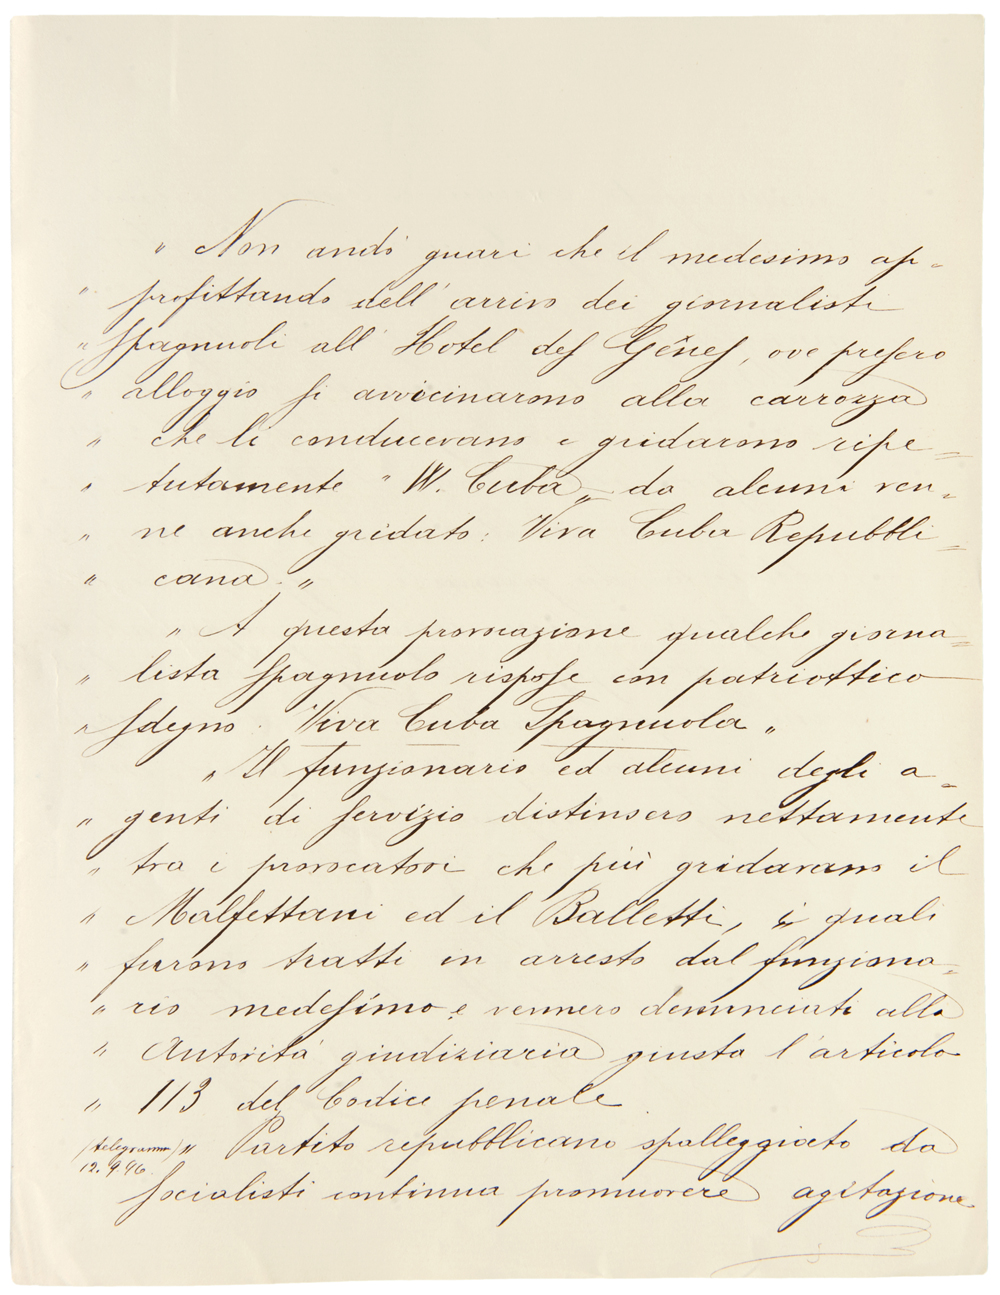 " Non andò guari che il medesimo ap-
" profittando dell'arrivo dei giornalisti
" spagnuoli all'Hotel des Gênes, ove presero
" alloggio si avvicinarono alla carrozza
" che li conducevano e gridarono ripe=
" tutamente "W. Cuba„ da alcuni ven=
" ne anche gridato: Viva Cuba Repubbli=
" cana. "
" A questa provocazione qualche giorna=
" lista spagnuolo rispose con patriottico
" sdegno. Viva Cuba Spagnuola "
" Il funzionario ed alcuni degli a=
" genti di servizio distinsero nettamente
" tra i provocatori che più gridavano il
" Malfettani ed il Balletti, i quali
" furono tratti in arresto dal funziona=
" rio medesimo e vennero denunciati alla
" Autorità giudiziaria giusta l'articolo
" 113 del Codice penale
(telegramma) " Partito repubblicano spalleggiato da
12.9.96.
socialisti continua promuovere agitazione